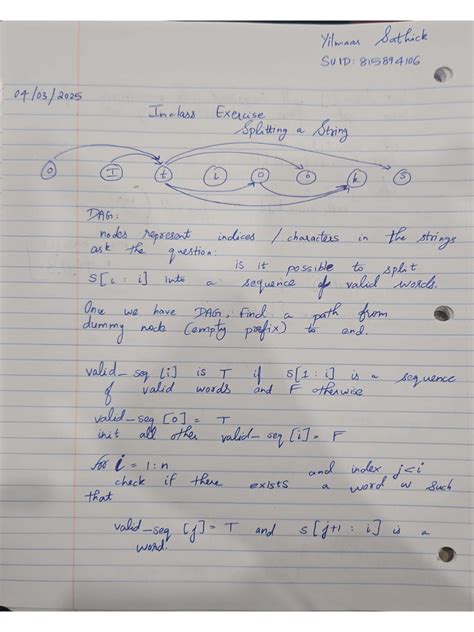 Yilmaar Sathick
SUID: 815894106
04/03/2025
Inclass Exercise
Splitting a String
0 I t i o o k s
DAG:
nodes represent indices / characters in the strings
ask the question:
is it possible to split
S[i : i] into a sequence of valid words.
Once we have DAG, Find a path from
dummy node (empty prefix) to end.
valid_seq [i] is T if S[1 : i] is a sequence
of valid words and F otherwise
valid_seq [0] = T
init all other valid_seq [i] = F
for i = 1:n and index j<i
check if there exists a word w such
that
valid_seq [j] = T and S[j+1 : i] is a
word.